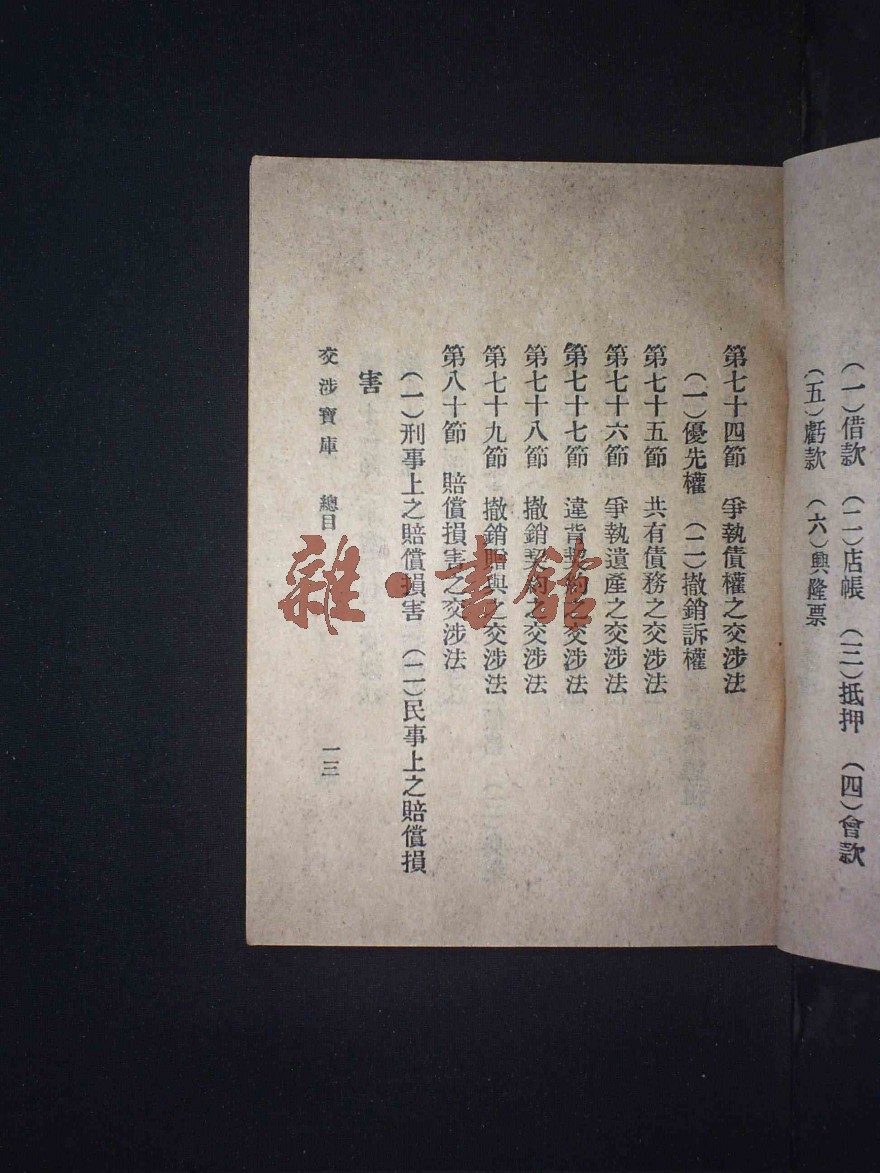 （一）借款　（二）店帳　（三）抵押　（四）會款
（五）虧款　（六）興隆票
第七十四節　爭執債權之交涉法
（一）優先權　（二）撤銷訴權
第七十五節　共有債務之交涉法
第七十六節　爭執遺產之交涉法
第七十七節　違背契約之交涉法
第七十八節　撤銷契約之交涉法
第七十九節　撤銷贈與之交涉法
第八十節　賠償損害之交涉法
（一）刑事上之賠償損害　（二）民事上之賠償損
害
交涉寶庫　總目　一三
雜·書館